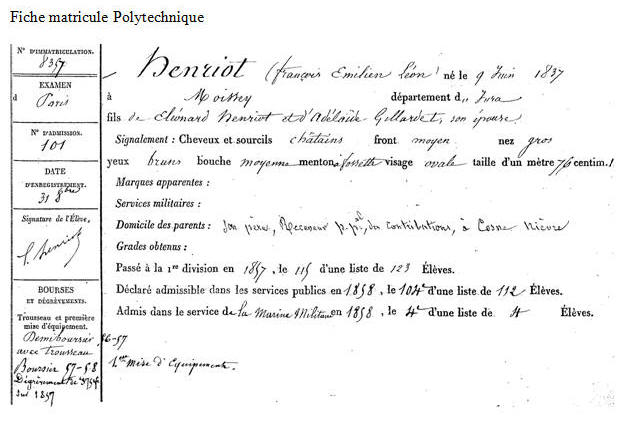 Fiche matricule Polytechnique
N° D'IMMATRICULATION.
8357
EXAMEN
d Paris
N° D'ADMISSION.
101
DATE
D'ENREGISTREMENT.
31 8bre
Signature de l'Élève.
L. Henriot
BOURSES
ET DÉGRÈVEMENTS.
Trousseau et première
mise d'équipement.
Demi boursier 56-57
avec trousseau
Boursier 57-58
Dégrèvement de
sur 1857
Henriot (François Emilien Léon) né le 9 Juin 1837
à Moissey département du Jura
fils de Léonard Henriot et d'Adélaïde Gillardet, son épouse
Signalement : Cheveux et sourcils châtains front moyen nez gros
yeux bruns bouche moyenne menton à fossette visage ovale taille d'un mètre 76 centim.
Marques apparentes :
Services militaires :
Domicile des parents : Son père, Receveur p.pal des contributions, à Cosne Nièvre
Grades obtenus :
Passé à la 1re division en 1857, le 115 d'une liste de 123 Élèves.
Déclaré admissible dans les services publics en 1858, le 104e d'une liste de 112 Élèves.
Admis dans le service de la Marine Militaire en 1858, le 4e d'une liste de 4 Élèves.
1ère mise d'Equipement.